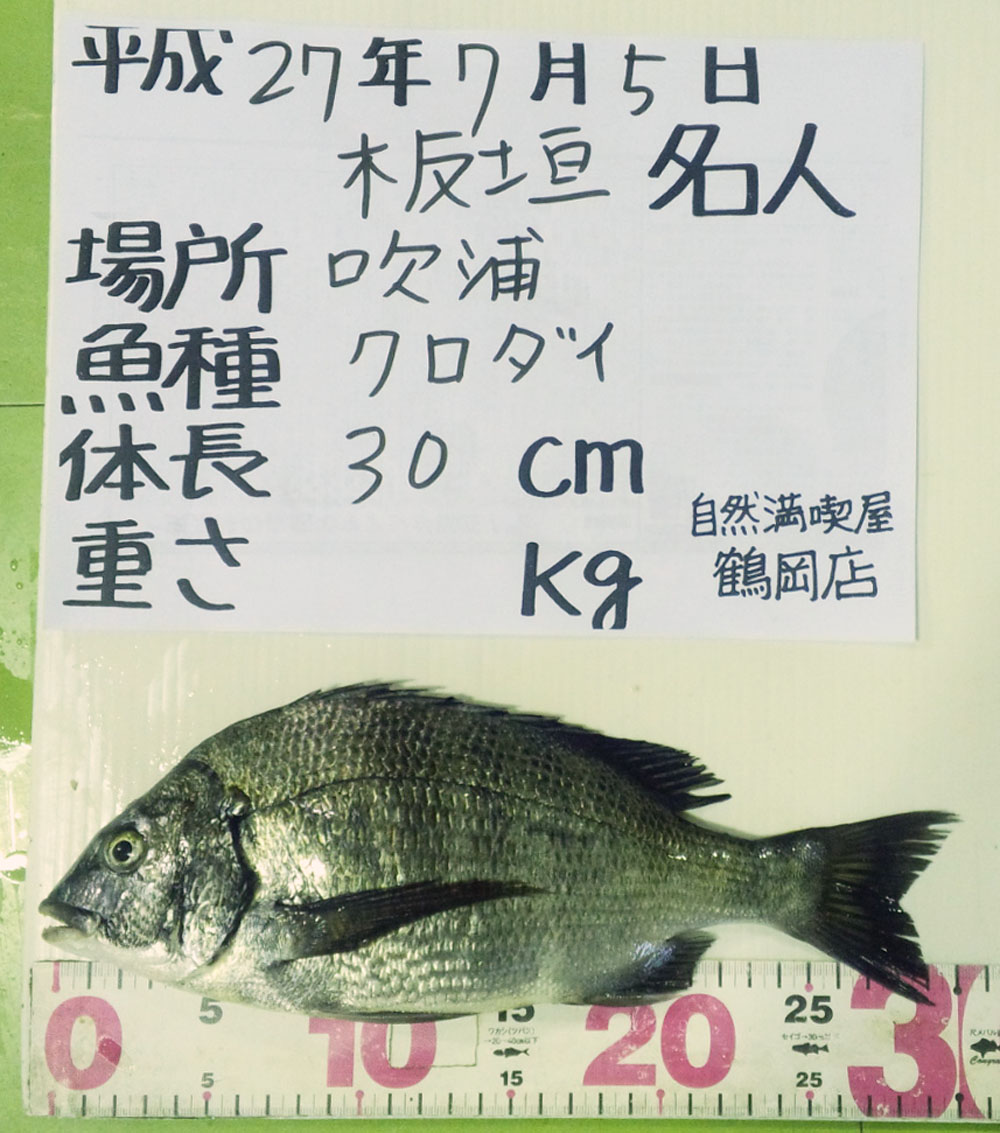 平成27年7月5日
板垣 名人
場所 吹浦
魚種 クロダイ
体長 30 cm
重さ kg
自然満喫屋
鶴岡店
0 5 10 15 20 25 30
5 15 25